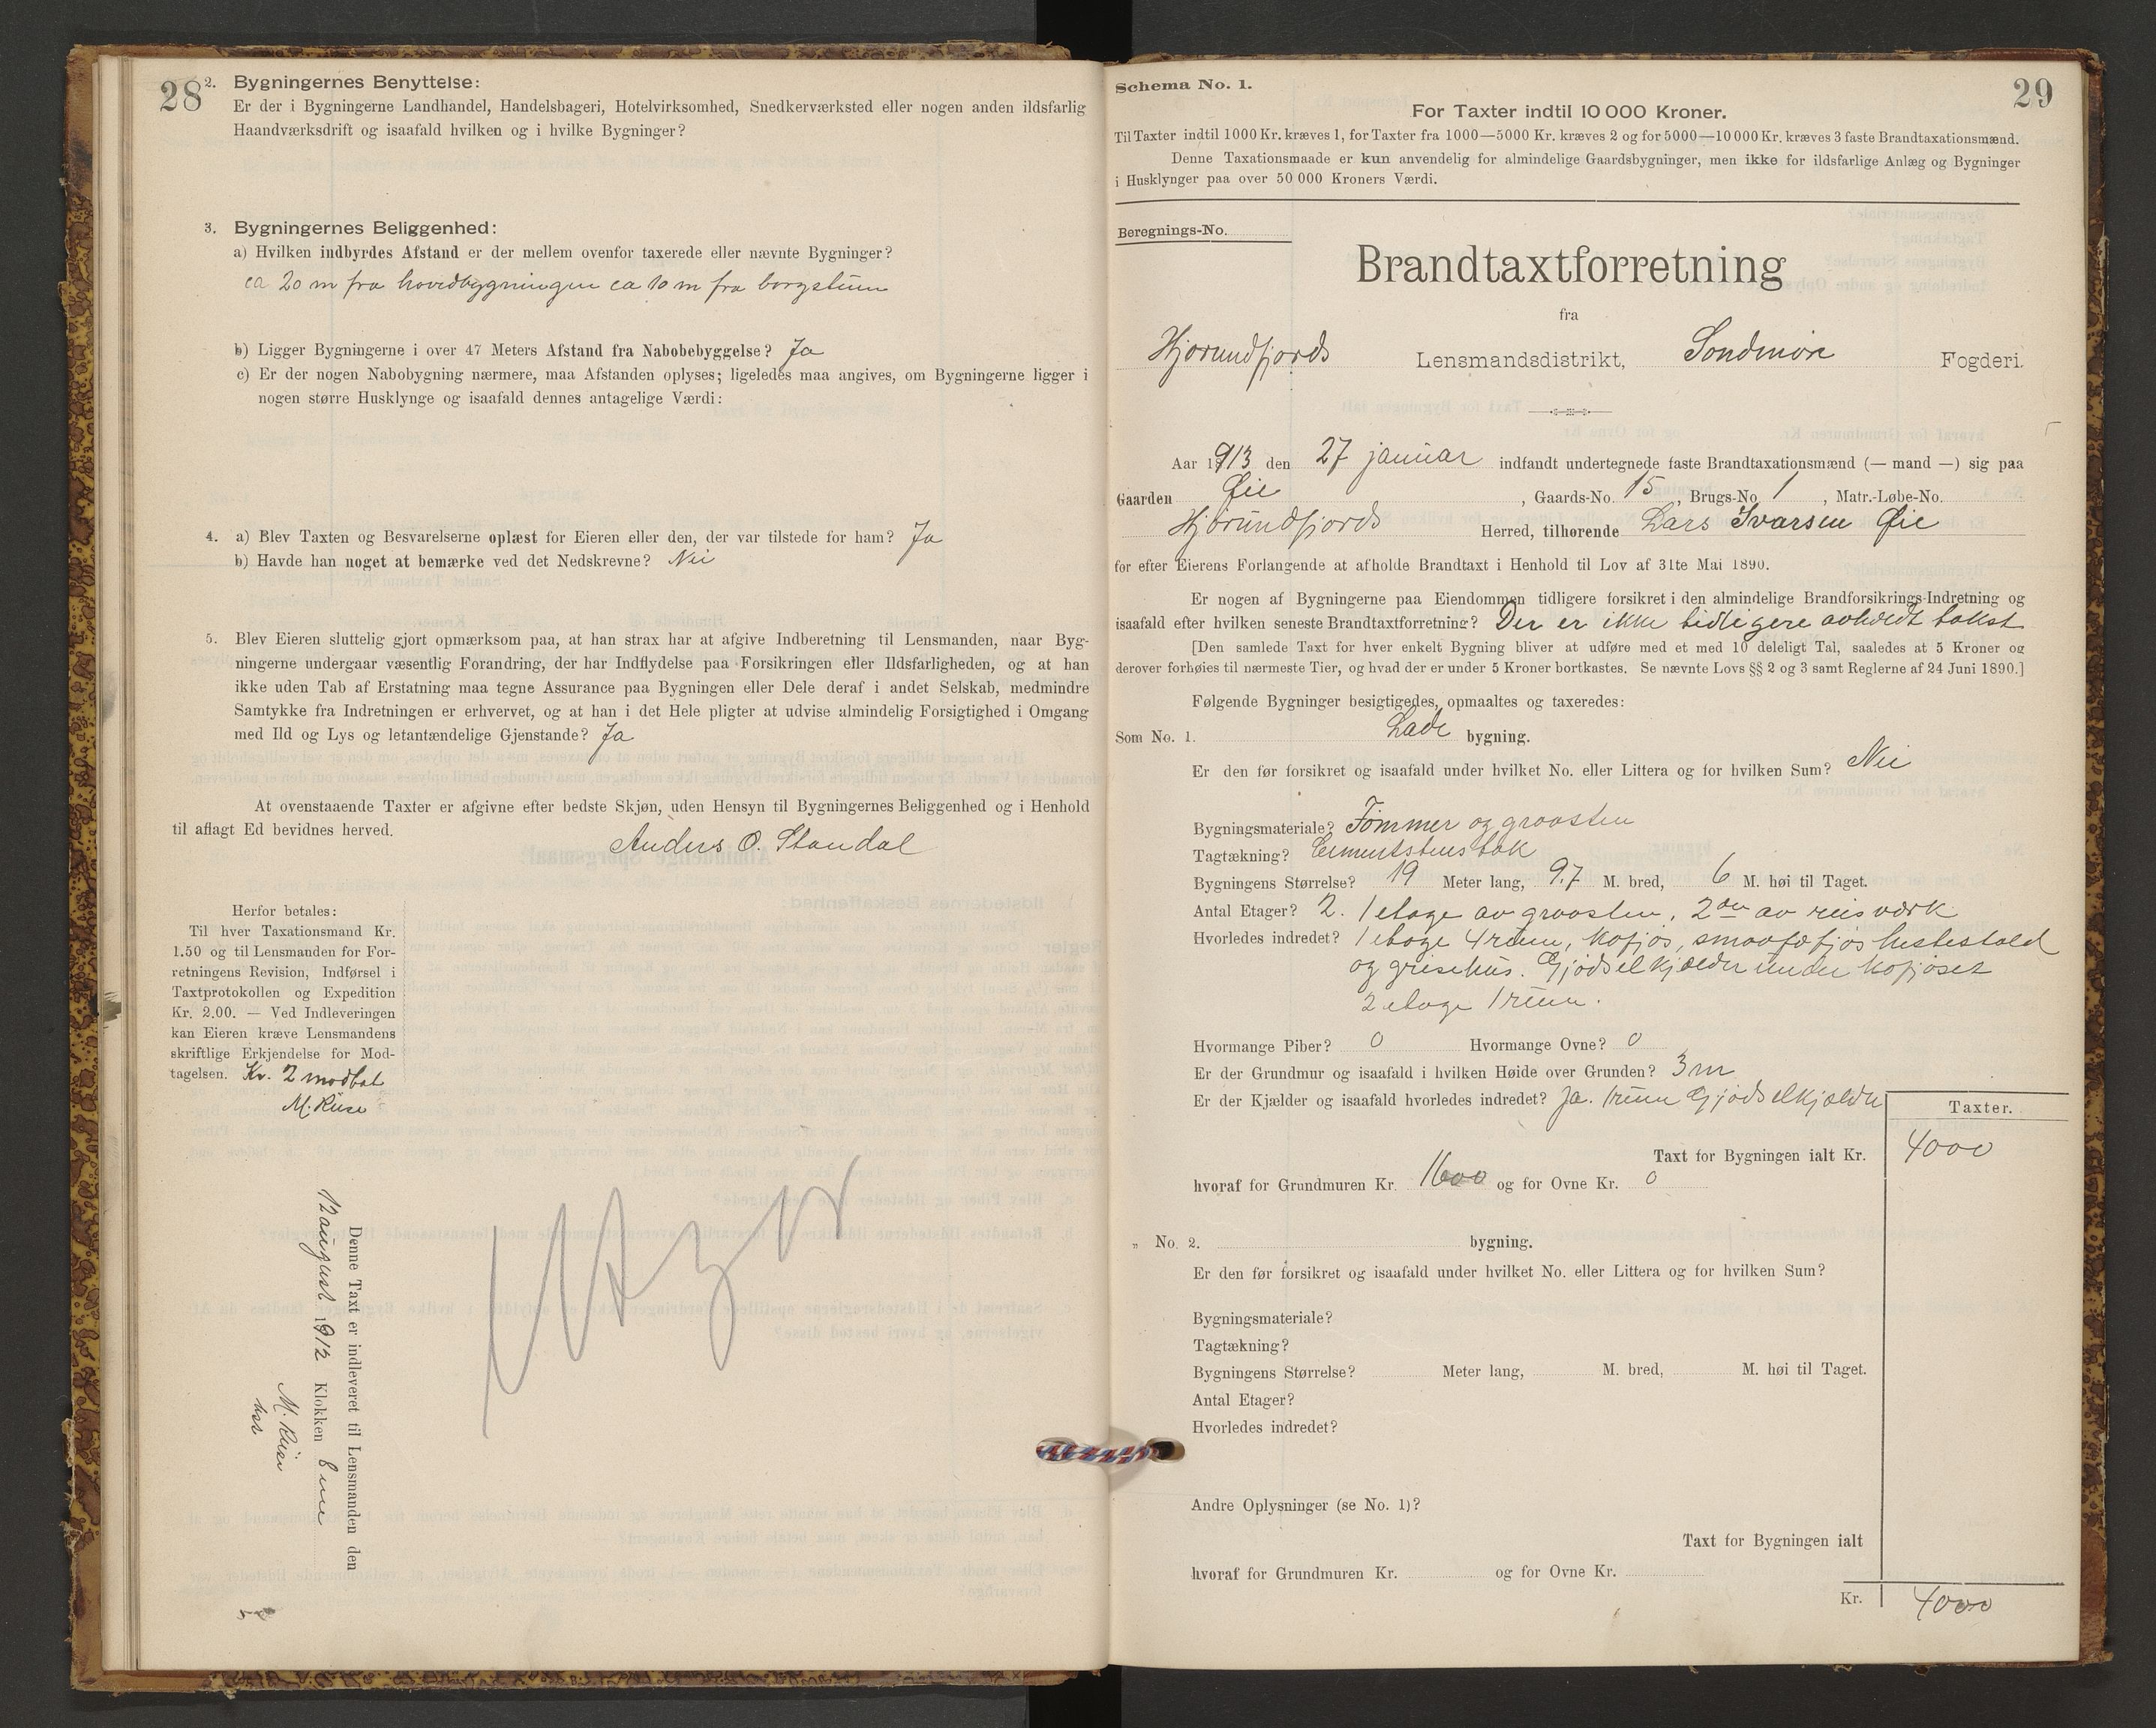 28
2. Bygningernes Benyttelse:
Er der i Bygningerne Landhandel, Handelsbageri, Hotelvirksomhed, Snedkerværksted eller nogen anden ildsfarlig
Haandværksdrift og isaafald hvilken og i hvilke Bygninger?
3. Bygningernes Beliggenhed:
a) Hvilken indbyrdes Afstand er der mellem ovenfor taxerede eller nævnte Bygninger?
ca 20 m fra hovedbygningen ca 10 m fra borgstuen
b) Ligger Bygningerne i over 47 Meters Afstand fra Nabobebyggelse? Ja
c) Er der nogen Nabobygning nærmere, maa Afstanden oplyses; ligeledes maa angives, om Bygningerne ligger i
nogen større Husklynge og isaafald dennes antagelige Værdi:
4. a) Blev Taxten og Besvarelserne oplæst for Eieren eller den, der var tilstede for ham? Ja
b) Havde han noget at bemærke ved det Nedskrevne? Nei
5. Blev Eieren sluttelig gjort opmærksom paa, at han strax har at afgive Indberetning til Lensmanden, naar Byg-
ningerne undergaar væsentlig Forandring, der har Indflydelse paa Forsikringen eller Ildsfarligheden, og at han
ikke uden Tab af Erstatning maa tegne Assurance paa Bygningen eller Dele deraf i andet Selskab, medmindre
Samtykke fra Indretningen er erhvervet, og at han i det Hele pligter at udvise almindelig Forsigtighed i Omgang
med Ild og Lys og letantændelige Gjenstande? Ja
At ovenstaaende Taxter er afgivne efter bedste Skjøn, uden Hensyn til Bygningernes Beliggenhed og i Henhold
til aflagt Ed bevidnes herved.
Anders O. Standal
Herfor betales:
Til hver Taxationsmand Kr.
1.50 og til Lensmanden for For-
retningens Revision, Indførsel i
Taxtprotokollen og Expedition
Kr. 2.00. — Ved Indleveringen
kan Eieren kræve Lensmandens
skriftlige Erkjendelse for Mod-
tagelsen. Kr. 2 modtat
M. Riise
Denne Taxt er indleveret til Lensmanden den
12 august 1912 Klokken
M. Riise
29
Schema No. 1.
For Taxter indtil 10 000 Kroner.
Til Taxter indtil 1000 Kr. kræves 1, for Taxter fra 1000—5000 Kr. kræves 2 og for 5000—10 000 Kr. kræves 3 faste Brandtaxationsmænd.
Denne Taxationsmaade er kun anvendelig for almindelige Gaardsbygninger, men ikke for ildsfarlige Anlæg og Bygninger
i Husklynger paa over 50 000 Kroners Værdi.
Beregnings-No.
Brandtaxtforretning
fra
Hjørundfjords Lensmandsdistrikt, Søndmøre Fogderi.
Aar 1913 den 27 januar indfandt undertegnede faste Brandtaxationsmænd (— mand —) sig paa
Gaarden Øie, Gaards-No. 15, Brugs-No. 1, Matr.-Løbe-No.
Hjørundfjords Herred, tilhørende Lars Ivarsen Øie
for efter Eierens Forlangende at afholde Brandtaxt i Henhold til Lov af 31te Mai 1890.
Er nogen af Bygningerne paa Eiendommen tidligere forsikret i den almindelige Brandforsikrings-Indretning og
isaafald efter hvilken seneste Brandtaxtforretning? Der er ikke tidligere avholdt takst
[Den samlede Taxt for hver enkelt Bygning bliver at udføre med et med 10 deleligt Tal, saaledes at 5 Kroner og
derover forhøies til nærmeste Tier, og hvad der er under 5 Kroner bortkastes. Se nævnte Lovs §§ 2 og 3 samt Reglerne af 24 Juni 1890.]
Følgende Bygninger besigtigedes, opmaaltes og taxeredes:
Som No. 1. Lade bygning.
Er den før forsikret og isaafald under hvilket No. eller Littera og for hvilken Sum? Nei
Bygningsmateriale? Tømmer og graasten
Tagtækning? Cementstenstak
Bygningens Størrelse? 19 Meter lang, 9.7 M. bred, 6 M. høi til Taget.
Antal Etager? 2. 1 etage av graasten, 2den av reisværk
Hvorledes indredet? 1 etage 4 rum, kofjøs, smaafæfjøs hestestald
og grisehus. Gjødselkjælder under kofjøset
2 etage 1 rum.
Hvormange Piber? 0 Hvormange Ovne? 0
Er der Grundmur og isaafald i hvilken Høide over Grunden? 3 m
Er der Kjælder og isaafald hvorledes indredet? Ja. 1 rum Gjødselkjælder
Taxter.
Taxt for Bygningen ialt Kr. 4000
hvoraf for Grundmuren Kr. 1600 og for Ovne Kr. 0
„ No. 2. bygning.
Er den før forsikret og isaafald under hvilket No. eller Littera og for hvilken Sum?
Bygningsmateriale?
Tagtækning?
Bygningens Størrelse? Meter lang, M. bred, M. høi til Taget.
Antal Etager?
Hvorledes indredet?
Andre Oplysninger (se No. 1)?
Taxt for Bygningen ialt
hvoraf for Grundmuren Kr. og for Ovne Kr.
Kr. 4000